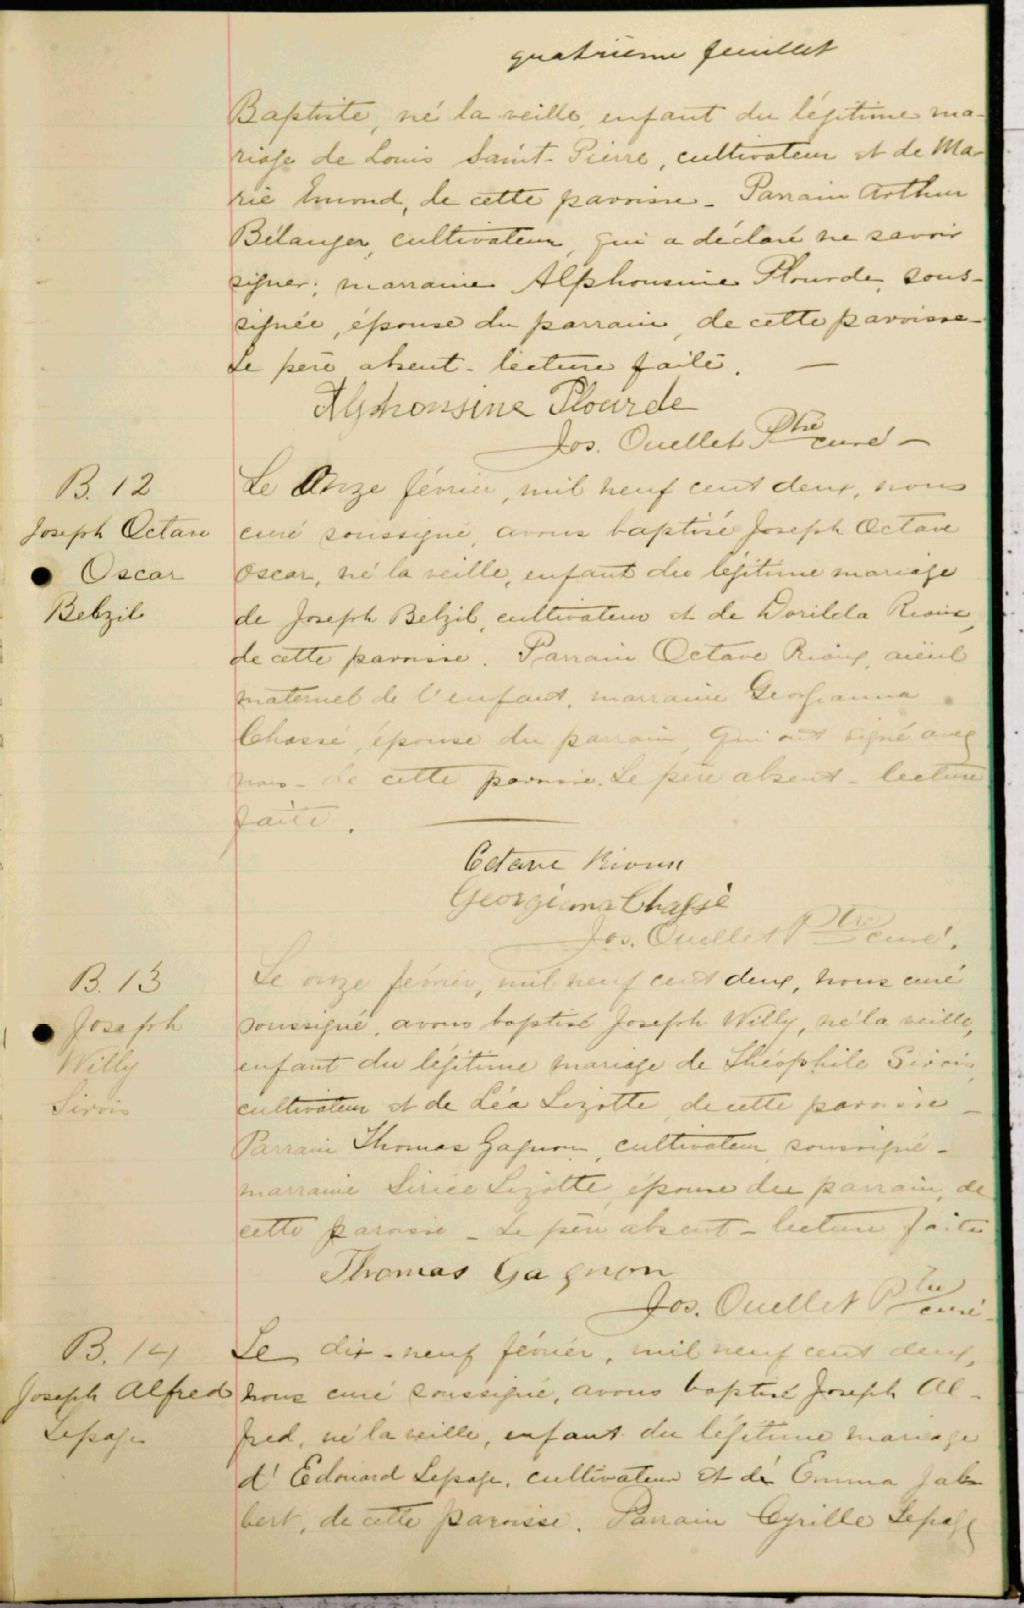 quatrième feuillet
Baptiste, né la veille, enfant du légitime ma-
riage de Louis Saint-Pierre, cultivateur et de Ma-
rie Emond, de cette paroisse - Parrain Arthur
Bélanger, cultivateur, qui a déclaré ne savoir
signer; marraine Alphonsine Plourde, sous-
signée, épouse du parrain, de cette paroisse-
Le père absent - lecture faite. —
Alphonsine Plourde
Jos. Ouellet Ptre curé -
B. 12
Joseph Octave
Oscar
Belzil
Le Onze février, mil neuf cent deux, nous
curé soussigné, avons baptisé Joseph Octave
Oscar, né la veille, enfant du légitime mariage
de Joseph Belzil, cultivateur et de Dorilda Rioux,
de cette paroisse. Parrain Octave Rioux, aïeul
maternel de l'enfant, marraine Georgianna
Chassé, épouse du parrain, qui ont signé avec
nous - de cette paroisse. Le père absent - lecture
faite. —
Octave Rioux
Georgiana Chassé
Jos. Ouellet Ptre curé.
B. 13
Joseph
Willy
Sirois
Le onze février, mil neuf cent deux, nous curé
soussigné, avons baptisé Joseph Willy, né la veille,
enfant du légitime mariage de Théophile Sirois,
cultivateur et de Léa Lizotte, de cette paroisse -
Parrain Thomas Gagnon, cultivateur, soussigné -
marraine Lizotte, épouse du parrain, de
cette paroisse - Le père absent - lecture faite
Thomas Gagnon
Jos. Ouellet Ptre curé -
B. 14
Joseph Alfred
Lepage
Le dix-neuf février, mil neuf cent deux,
nous curé soussigné, avons baptisé Joseph Al-
fred, né la veille, enfant du légitime mariage
d'Edouard Lepage, cultivateur et de Emma Jal-
bert, de cette paroisse. Parrain Cyrille Lepage